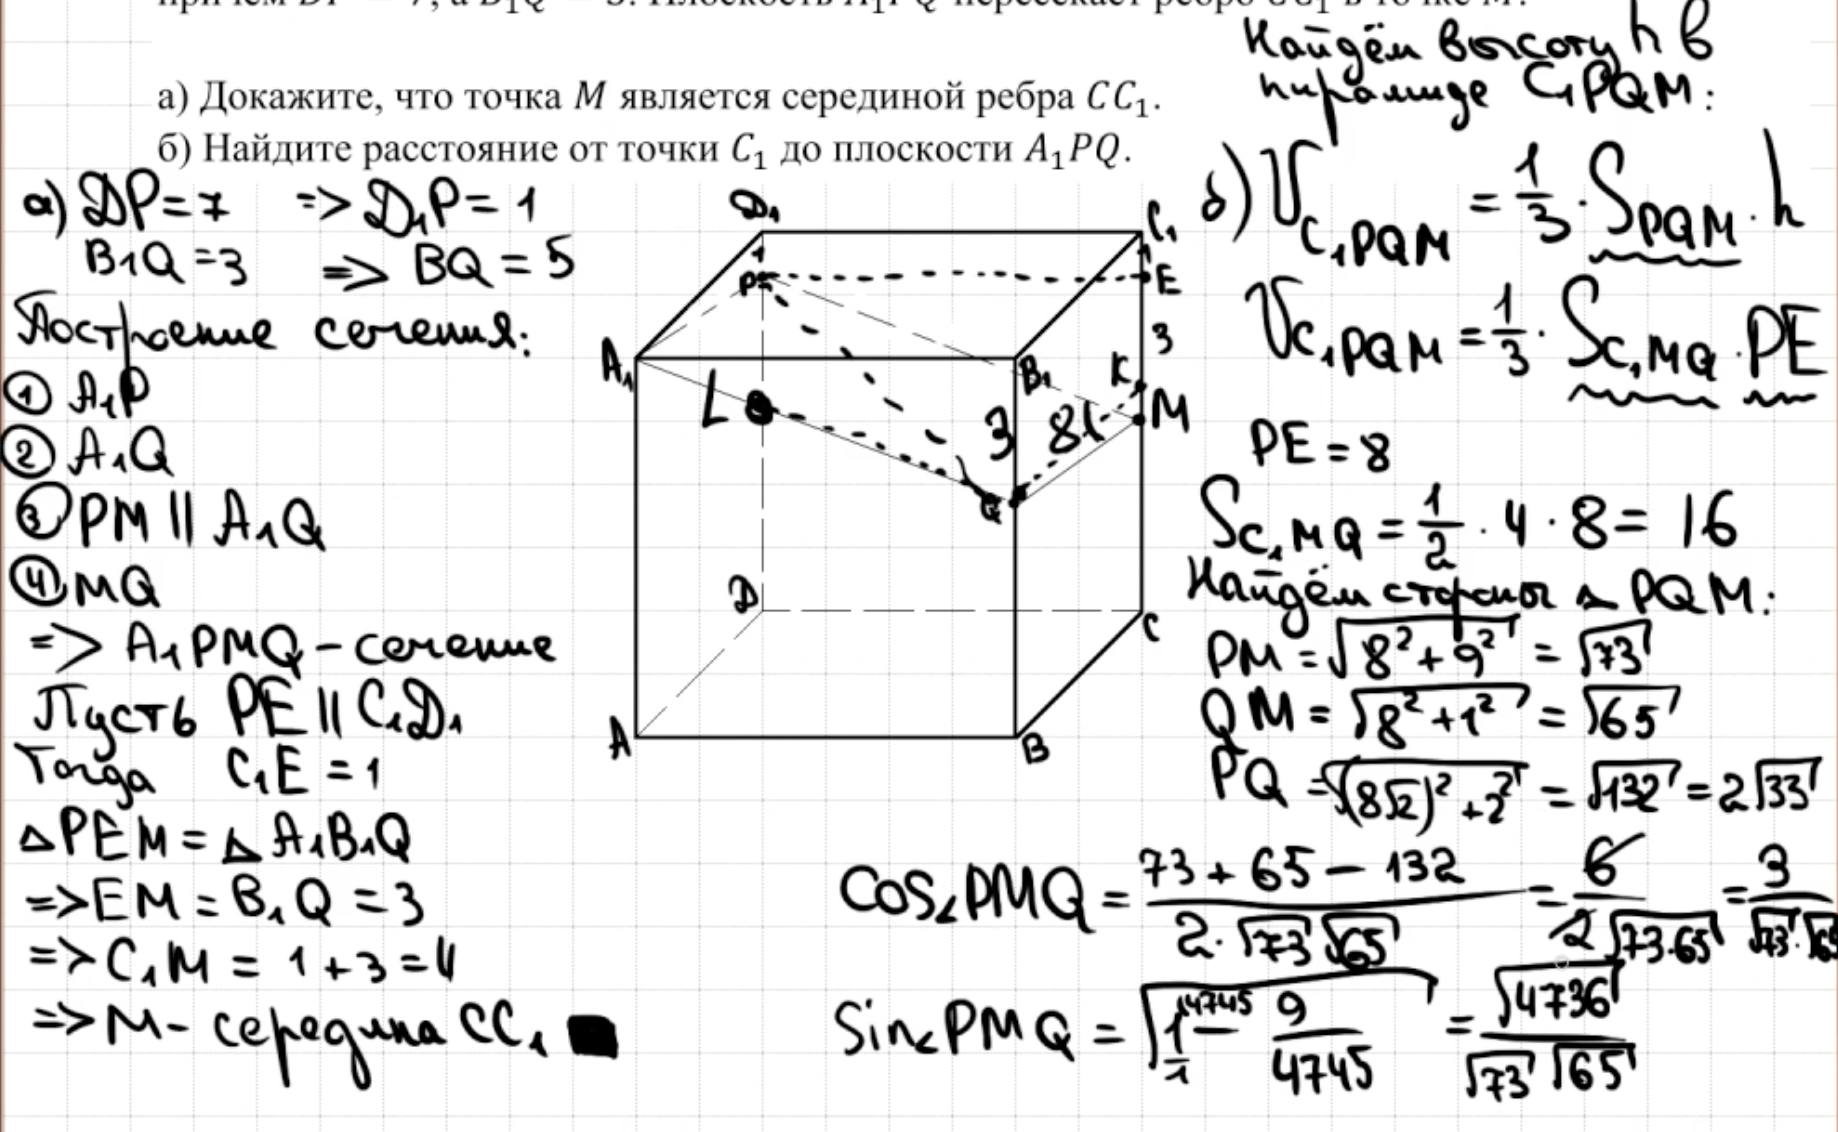 причём DP = 7, а B₁Q = 3. Плоскость A₁PQ пересекает ребро CC₁ в точке M.
а) Докажите, что точка M является серединой ребра CC₁.
б) Найдите расстояние от точки C₁ до плоскости A₁PQ.
а) DP=7 => D₁P=1
B₁Q=3 => BQ=5
Построение сечения:
① A₁P
② A₁Q
③ PM || A₁Q
④ MQ
=> A₁PMQ - сечение
Пусть PE || C₁D₁
Тогда C₁E = 1
△PEM = △A₁B₁Q
=> EM = B₁Q = 3
=> C₁M = 1+3=4
=> M - середина CC₁
D₁
C₁
1
1
P
E
3
A₁
B₁
K
L
3
8
M
Q
D
C
A
B
Найдём высоту h в
пирамиде C₁PQM:
б) V_C₁PQM = 1/3 · S_PQM · h
V_C₁PQM = 1/3 · S_C₁MQ · PE
PE = 8
S_C₁MQ = 1/2 · 4 · 8 = 16
Найдём стороны △ PQM:
PM = √(8²+9²) = √73
QM = √(8²+1²) = √65
PQ = √((8√2)²+2²) = √132 = 2√33
Cos∠PMQ = (73+65−132)/(2·√73 √65) = 6/(2√(73·65)) = 3/(√73·√65)
Sin∠PMQ = √(1/1 ⁴⁷⁴⁵ − 9/4745) = √4736/(√73 √65)